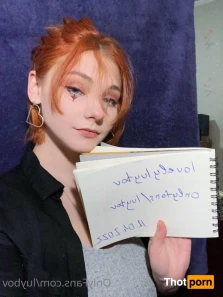 lovelyluybov
onlyfans/luybov
11.04.2022
OnlyFans.com/luybov
Thotporn